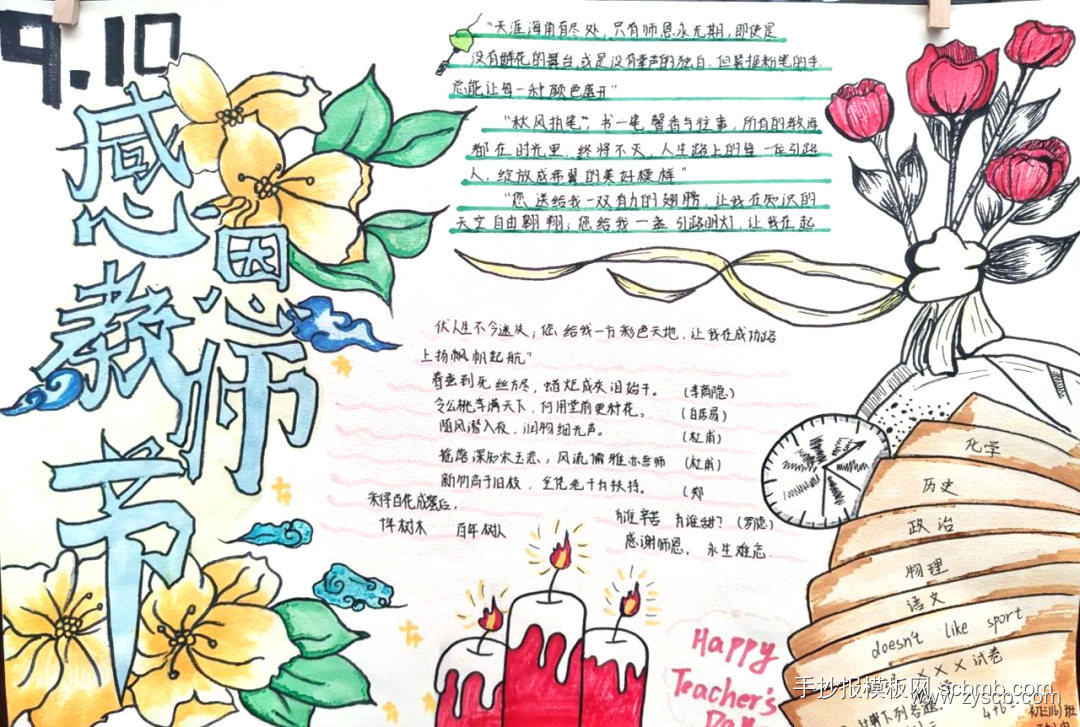 9.10
感恩教师节
"天涯海角有尽处，只有师恩无穷期，即使是
没有鲜花的舞台，或是没有掌声的独白，但紧握粉笔的手
总能让每一种颜色盛开"
"秋风执笔"，书一笔馨香与往事，所有的教诲
都在时光里，终将不灭，人生路上的每一位引路
人，绽放成希冀的美好模样"
"您送给我一双有力的翅膀，让我在知识的
天空自由翱翔；您给我一盏引路明灯，让我在起
伏人生不今迷失；您给我一方彩色天地，让我在成功路
上扬帆起航"
春蚕到死丝方尽，蜡炬成灰泪始干。（李商隐）
令公桃李满天下，何用堂前更种花。（白居易）
随风潜入夜，润物细无声。（杜甫）
摇落深知宋玉悲，风流儒雅亦吾师（杜甫）
新竹高于旧枝，全凭老干为扶持。（郑
采得百花成蜜后，
为谁辛苦 为谁甜？（罗隐）
十年树木 百年树人
感谢师恩，永生难忘
化学
历史
政治
物理
语文
doesn't like sport
×××试卷
Happy
Teacher's
Day
手抄报模板网 scbmb.com
www.zyscb.com